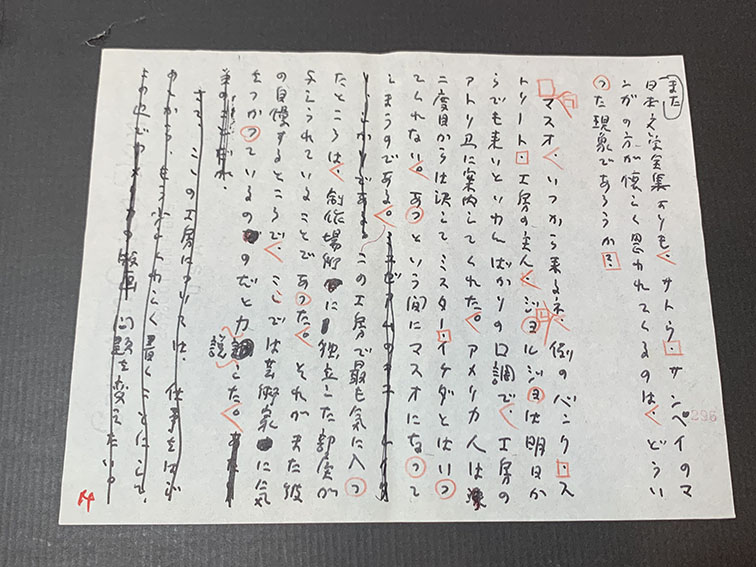 また
日本文学全集よりも、サトウ・サンペイのマ
ンガの方が懐しく思われてくるのは、どうい
った現象であろうか?
マスオ、いつから来るネ、例のバンク・ス
トリート・工房の主人、ジョルジョは明日か
らでも来いといわんばかりの口調で、工房の
アトリエに案内してくれた。アメリカ人は
二度目からは決してミスター・イケダとはいっ
てくれない。あっという間にマスオになって
しまうのである。
この工房で最も気に入っ
たところは、創作場所に独立した部屋が
与えられていることであった。それがまた彼
の自慢するところで、ここでは芸術家に気
をつかっているのだと力説した。
さて、この工房については、仕事をはじ
めてから、もう少しくわしく書くことにして、
アメリカの版画問題を変えたい。
14